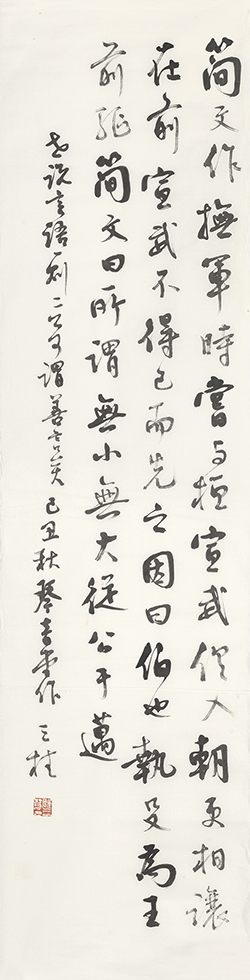 簡文作撫軍時嘗與桓宣武俱入朝更相讓
在前宣武不得已而先之因曰伯也執殳為王
前驅簡文曰所謂無小無大從公于邁
世說言語一則二公可謂善言矣己丑秋琴 作 三桂